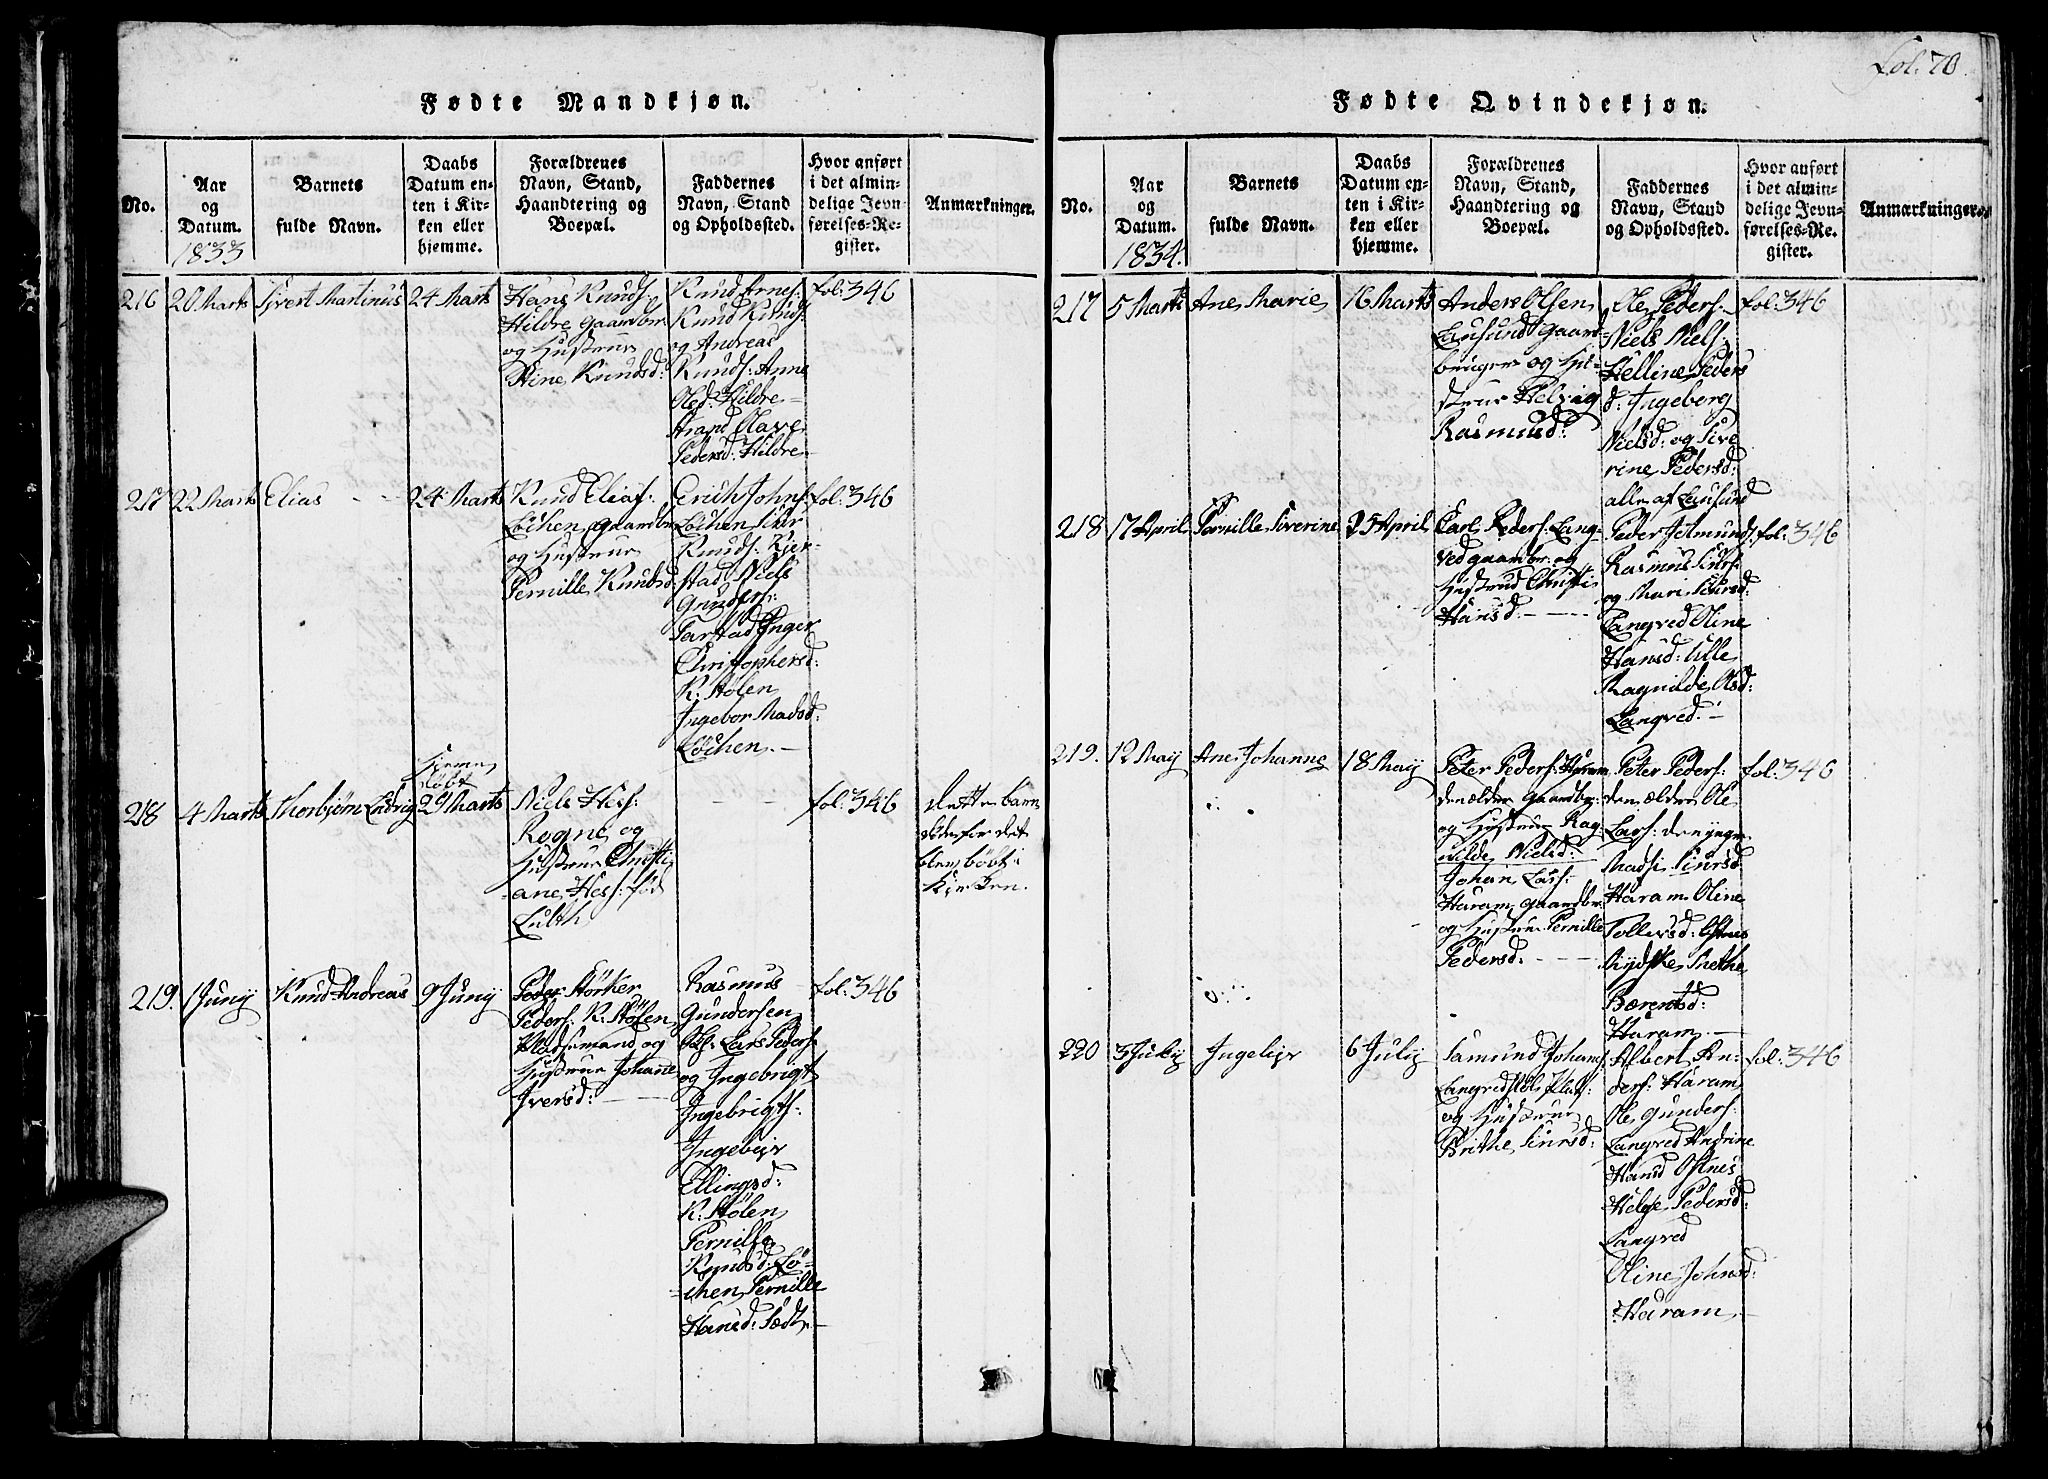 Fol: 70.
Fødte Mandkjøn.
No.
Aar
og
Datum.
1833
Barnets
fulde Navn.
Daabs
Datum en-
ten i Kir-
ken eller
hjemme.
Forældrenes
Navn, Stand,
Haandtering og
Boepæl.
Faddernes
Navn, Stand
og Opholdssted.
Hvor anført
i det almin-
delige Jevn-
førelses-Re-
gister.
Anmærkninger.
216
20 Marts
Sivert Martinus
24 Marts
Hans Knuds:
Hildre gaardbr
og Hustrue
Stine Knudsd:
Knud Arnes:
Knud Knuds:
og Andreas
Knuds: Anne
Olsd: Hildre
Strand Olave
Pedersd: Hildre
fol: 346
217
22 Marts
Elias
24 Marts
Knud Elias:
Löchen gaardbr
og Hustrue
Pernille Knudsd:
Erich Johns:
Löchen Siver
Knuds: Kjer-
stad Niels
Gunders:
Farstad Inger
Christophersd:
K: Stölen
Ingebor Madsd:
Löchen.
fol: 346
218
4 Marts
Thorbjørn Ludvig
Hjemme
døbt
29 Marts
Niels Hess:
Rogne og
Hustrue Christi
ane Hess: fød
Luth
fol: 346
dette barn
døde før det
blev døbt i
Kirken.
219.
1 Juny
Knud Andreas
9 Juny
Peder Störker
Peders: K: Stölen
Pladsmand og
Hustrue Johanne
Iversd:
Rasmus
Gundersen
Ols: Lars Peders:
og Ingebrigt
Ingebrigts:
Ingebejr
Ellingsd:
K: Stölen
Pernille
Knudsd: Lö-
chen Pernille
Hansd: Sædt
fol: 346
Fødte Qvindekjøn.
No.
Aar
og
Datum.
1834.
Barnets
fulde Navn.
Daabs
Datum en-
ten i Kir-
ken eller
hjemme.
Forældrenes
Navn, Stand,
Haandtering og
Boepæl.
Faddernes
Navn, Stand
og Opholdssted.
Hvor anført
i det almin-
delige Jevn-
førelses-Re-
gister.
Anmærkninger.
217
5 Marts
Ane Marie
16 Marts
Anders Olsen
Lausund gaard-
bruger og Hu-
strue Helvig
Rasmusd:
Ole Peders:
Niels Niels:
Helline Peders
d: Ingeborg
Nielsd: og Sive
rine Pedersd:
alle af Lausund
fol: 346
218
17 April
Pernille Siverine
25 April
Carl Peders: Lang-
ved gaardbr: og
Hustrue Christi
Hansd:
Peder Aamunds:
Rasmus Siurs:
og Mari Siursd:
Langved Oline
Hansd: Ulle
Ragnilde Olsd:
Langved.
fol: 346
219.
12 May
Ane Johanne
18 May
Peter Peders: Haram
den ældre gaardbr:
og Hustrue Rag
nilde Nielsd:
Johan Lars:
Haram gaardbr:
og Hustrue Pernille
Pedersd:
Peter Peders:
den ældre Ole
Lars: den yngre
Madsi Siursd
Haram Oline
Tollersd: Ostnes
Rydske Grethe
Bærentsd:
Haram.
fol: 346
220
3 July
Ingelejr
6 July
Samund Johans:
Langvedstöl Plads:
og Hustrue
Brithe Siursd:
Albert An-
ders: Haram
Ole Gunders:
Langved Andrine
Hansd Ostnes
Helge Pedersd:
Langved
Oline Johnsd:
Haram
fol: 346